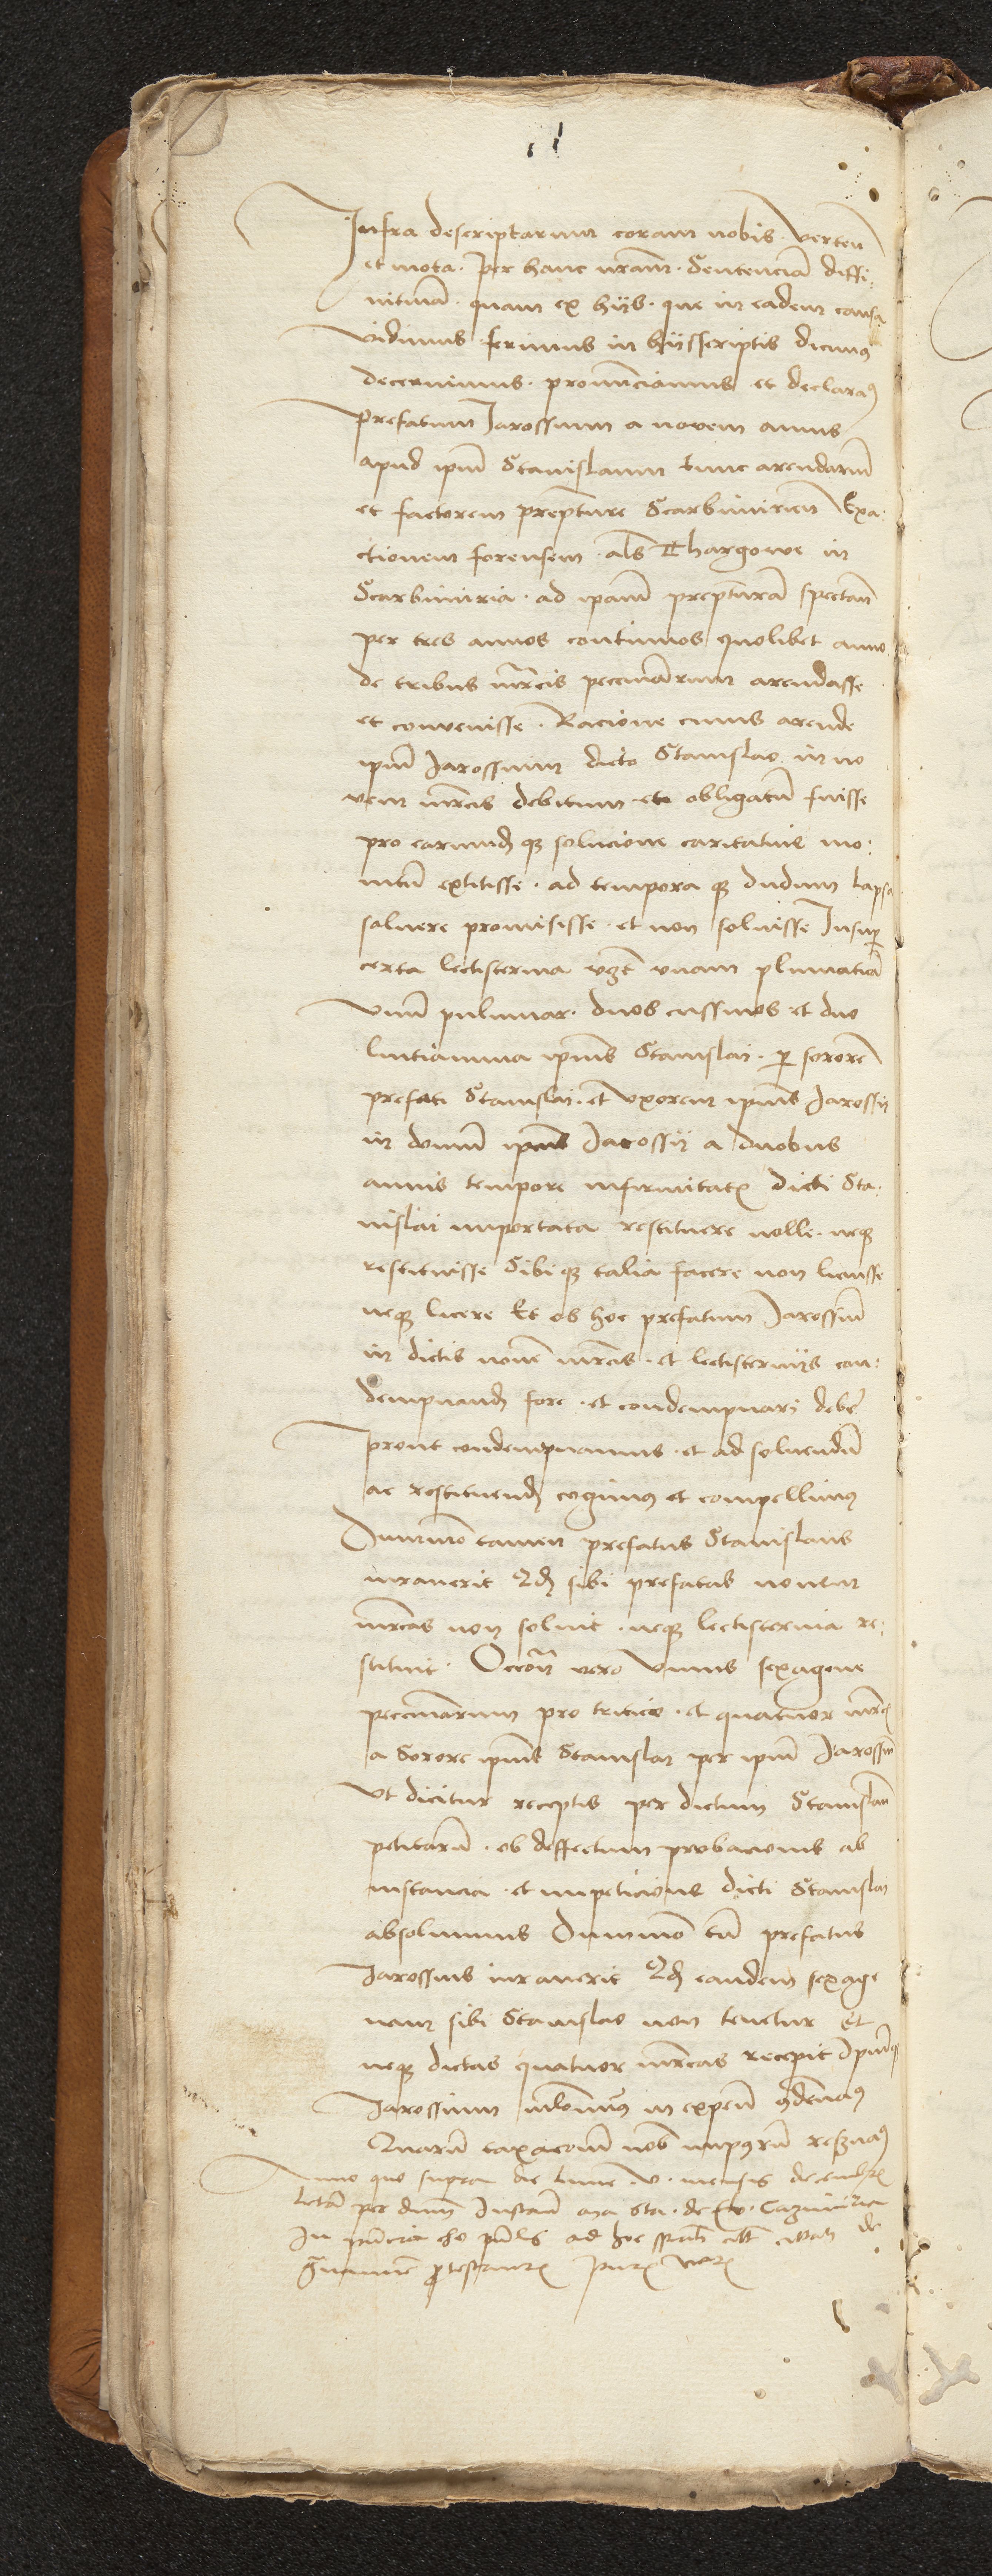 Infra descriptarum coram nobis verten
et mota. per hanc nram. Sentenciā diffi:
nitiuā. quam ex hijs. que in eadem causa
vidimus ferimus in hijsscriptis dicimus
decernimus. pronunciamus et declaram9
prefatum Jarossium a novem annis
apud ipm̄ Stanislaum tunc arendariū
et factorem prepture Scarbimirien̄ Exa:
ctionem forensem. als Thargowe in
Scarbimiria. ad ipam̄ prepturā spectan̄
per tres annos continuos quolibet anno
de tribus mrcis pecuniarum arendasse
et convenisse. Racione cuius arende
ipm̄ Jarossium dicto Stanislao in no
vem mrcis debitum et obligatū fuisse
pro earundq̄ solucione caritatiue mo:
nitū extitisse. ad tempora q̄ dudum lapsa
soluere promisisse. et non soluisse Insup
certa lectisternia vz̄t vnam plumatiā
vnū puluinar. duos cussinos et duo
lintiamina ipius Stanislai. p sororē
prefati Stanislai. et vxorem ipius Jarossij
in domū ipius Jarossij a duobus
annis tempore infirmitatis dicti Sta:
nislai importata restituere nolle. neq̄
restituisse Sibiq̄ talia facere non licuisse
neq̄ licere Et ob hoc prefatum Jarossiū
in dictis novē mrcis. et lectisternijs con:
dempnand fore. et condempnari debe
prout condempnamus. et ad soluendū
ac restituend cogimus et compellimus
Dummō tamen prefatus Stanislaus
iurauerit Qd sibi prefatas novem
mrcas non soluit. neq̄ lectisternia re:
stituit. Occōn vero vnius sexagene
pecuniarum pro tritico. et quatuor mrcis
a Sorore ipius Stanislai per ipm̄ Jarossiū
vt dicitur receptis per dictum Stanislaū
petitarū. ob deffectum probacionis ab
instancia. et impeticione dicti Stanislai
absoluimus Dummō tn̄ prefatus
Jarossius iurauerit Qd eandem sexage
nam sibi Stanislao non tenetur Et
neq̄ dictas quatuor mrcas recepit
Jarossium in expen̄ 9den̄am9
Quarū taxacoīm nob imp9rū reservam9
Anno quo supra die lune v. mensis decembris
in dictis